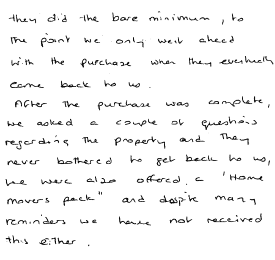 they did the bare minimum, to
the point we only went ahead
with the purchase when they eventually
came back to us.
After the purchase was complete,
we asked a couple of questions
regarding the property and they
never bothered to get back to us,
we were also offered a "Home
movers pack" and despite many
reminders we have not received
this either.